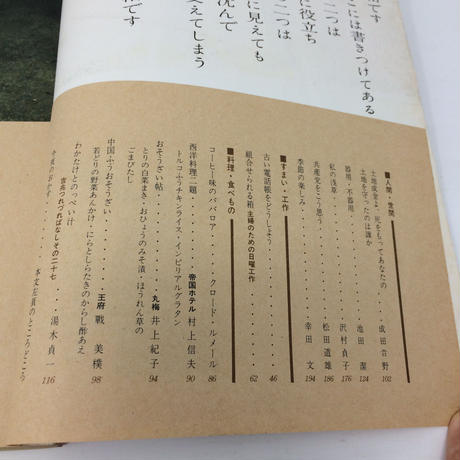 術です
こには書きつけてある
二つは
に役立ち
二つは
に見えても
沈んで
変えてしまう
■人間・世間
土地成金よ、死をもってあなたの・・・成田音野 102
土地を守ったのは誰か・・・池田潔 124
器用・不器用・・・沢村貞子 176
私の浅草・・・松田道雄 186
共産党をこう思う・・・幸田文 194
季節の楽しみ
■すまい・工作
古い電話帳をどうしよう・・・46
組合せられる箱 主婦のための日曜工作・・・62
■料理・食べもの
コーヒー味のババロア・・・クロード・ルメール 86
西洋料理二題・・・帝国ホテル 村上信夫 90
トルコふうチキンライス・インピリアルグラタン
おそうざい帖・・・丸梅 井上紀子 94
とりの白菜まき・おひょうのみそ漬・ほうれん草の
ごまびたし
中国ふうおそうざい・・・王府 戰美樸 98
若どりの野菜あんかけ・にらとしらたきのからし酢あえ
わかたけとのっぺい汁
吉兆つれづればなしその二十七・・・湯木貞一 116
今夜のおかず・・・本文左肩のところどころ